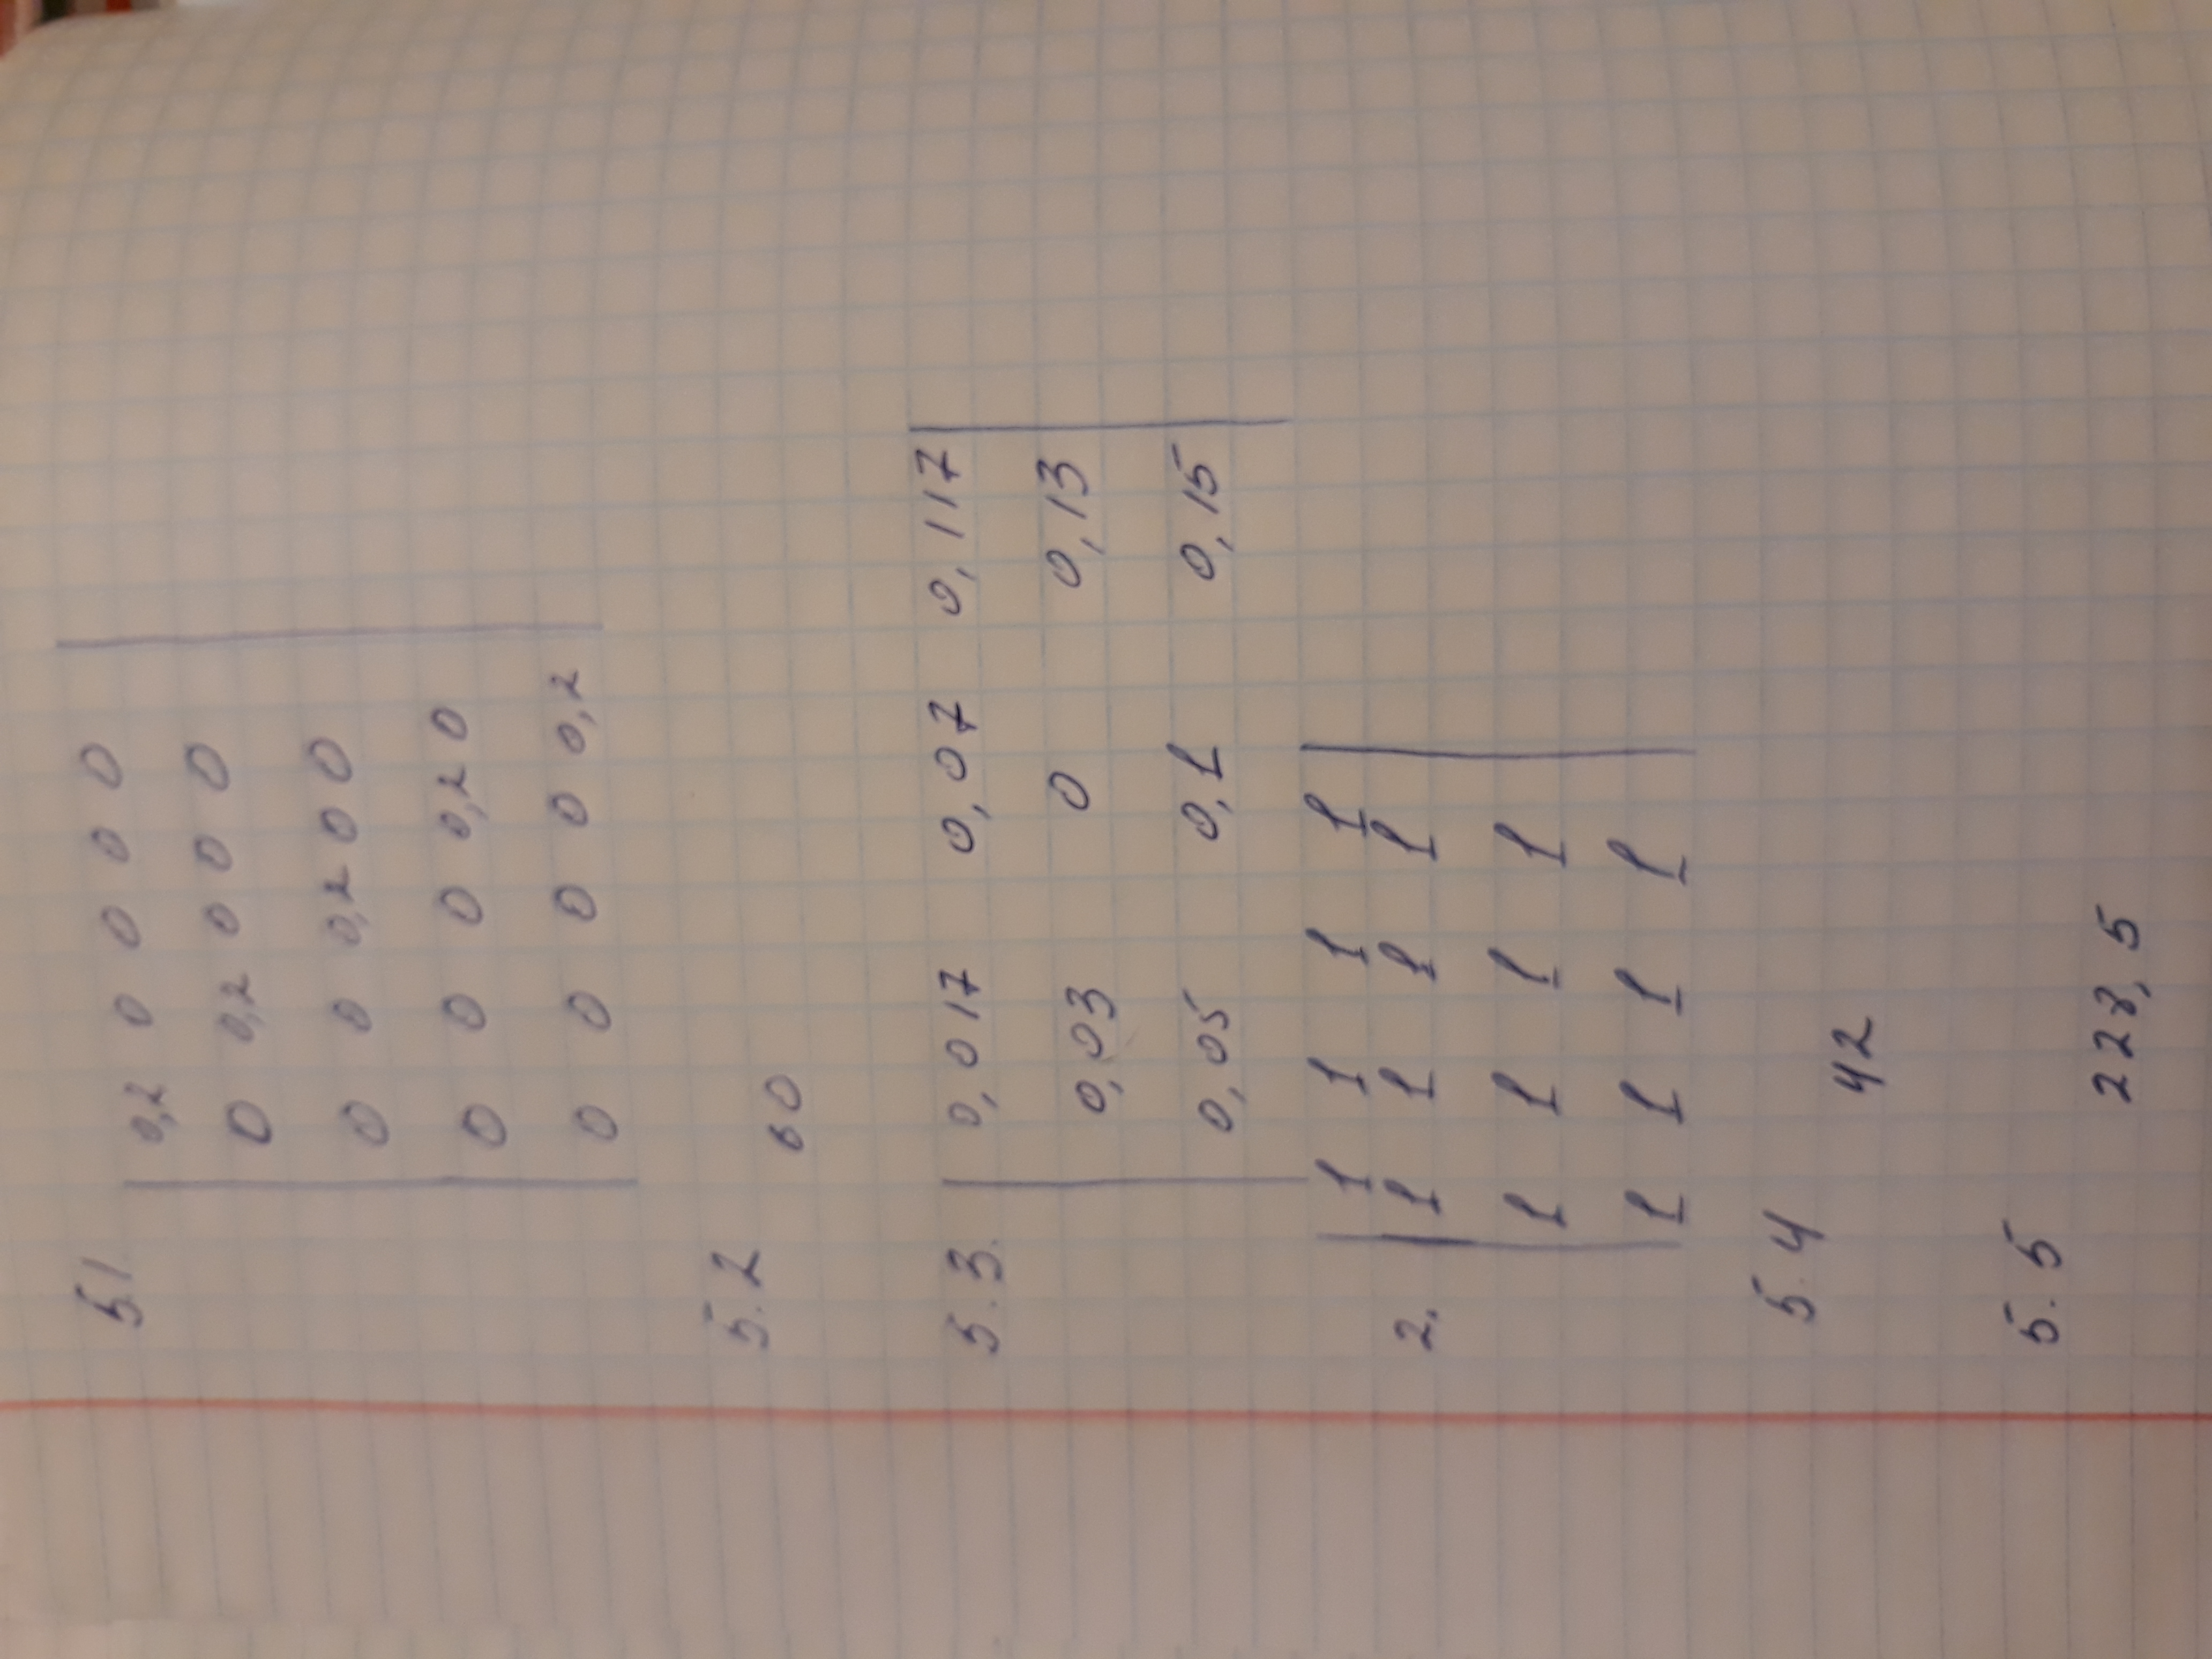 5.1.
0,2 0 0 0 0
0 0,2 0 0 0
0 0 0,2 0 0
0 0 0 0,2 0
0 0 0 0 0,2
5.2
60
5.3. 0,017 0,07 0,117
0,03 0 0,13
0,05 0,1 0,15
1 1 1 1
2. 1 1 1 1
1 1 1 1
1 1 1 1
5.4
42
5.5
228,5